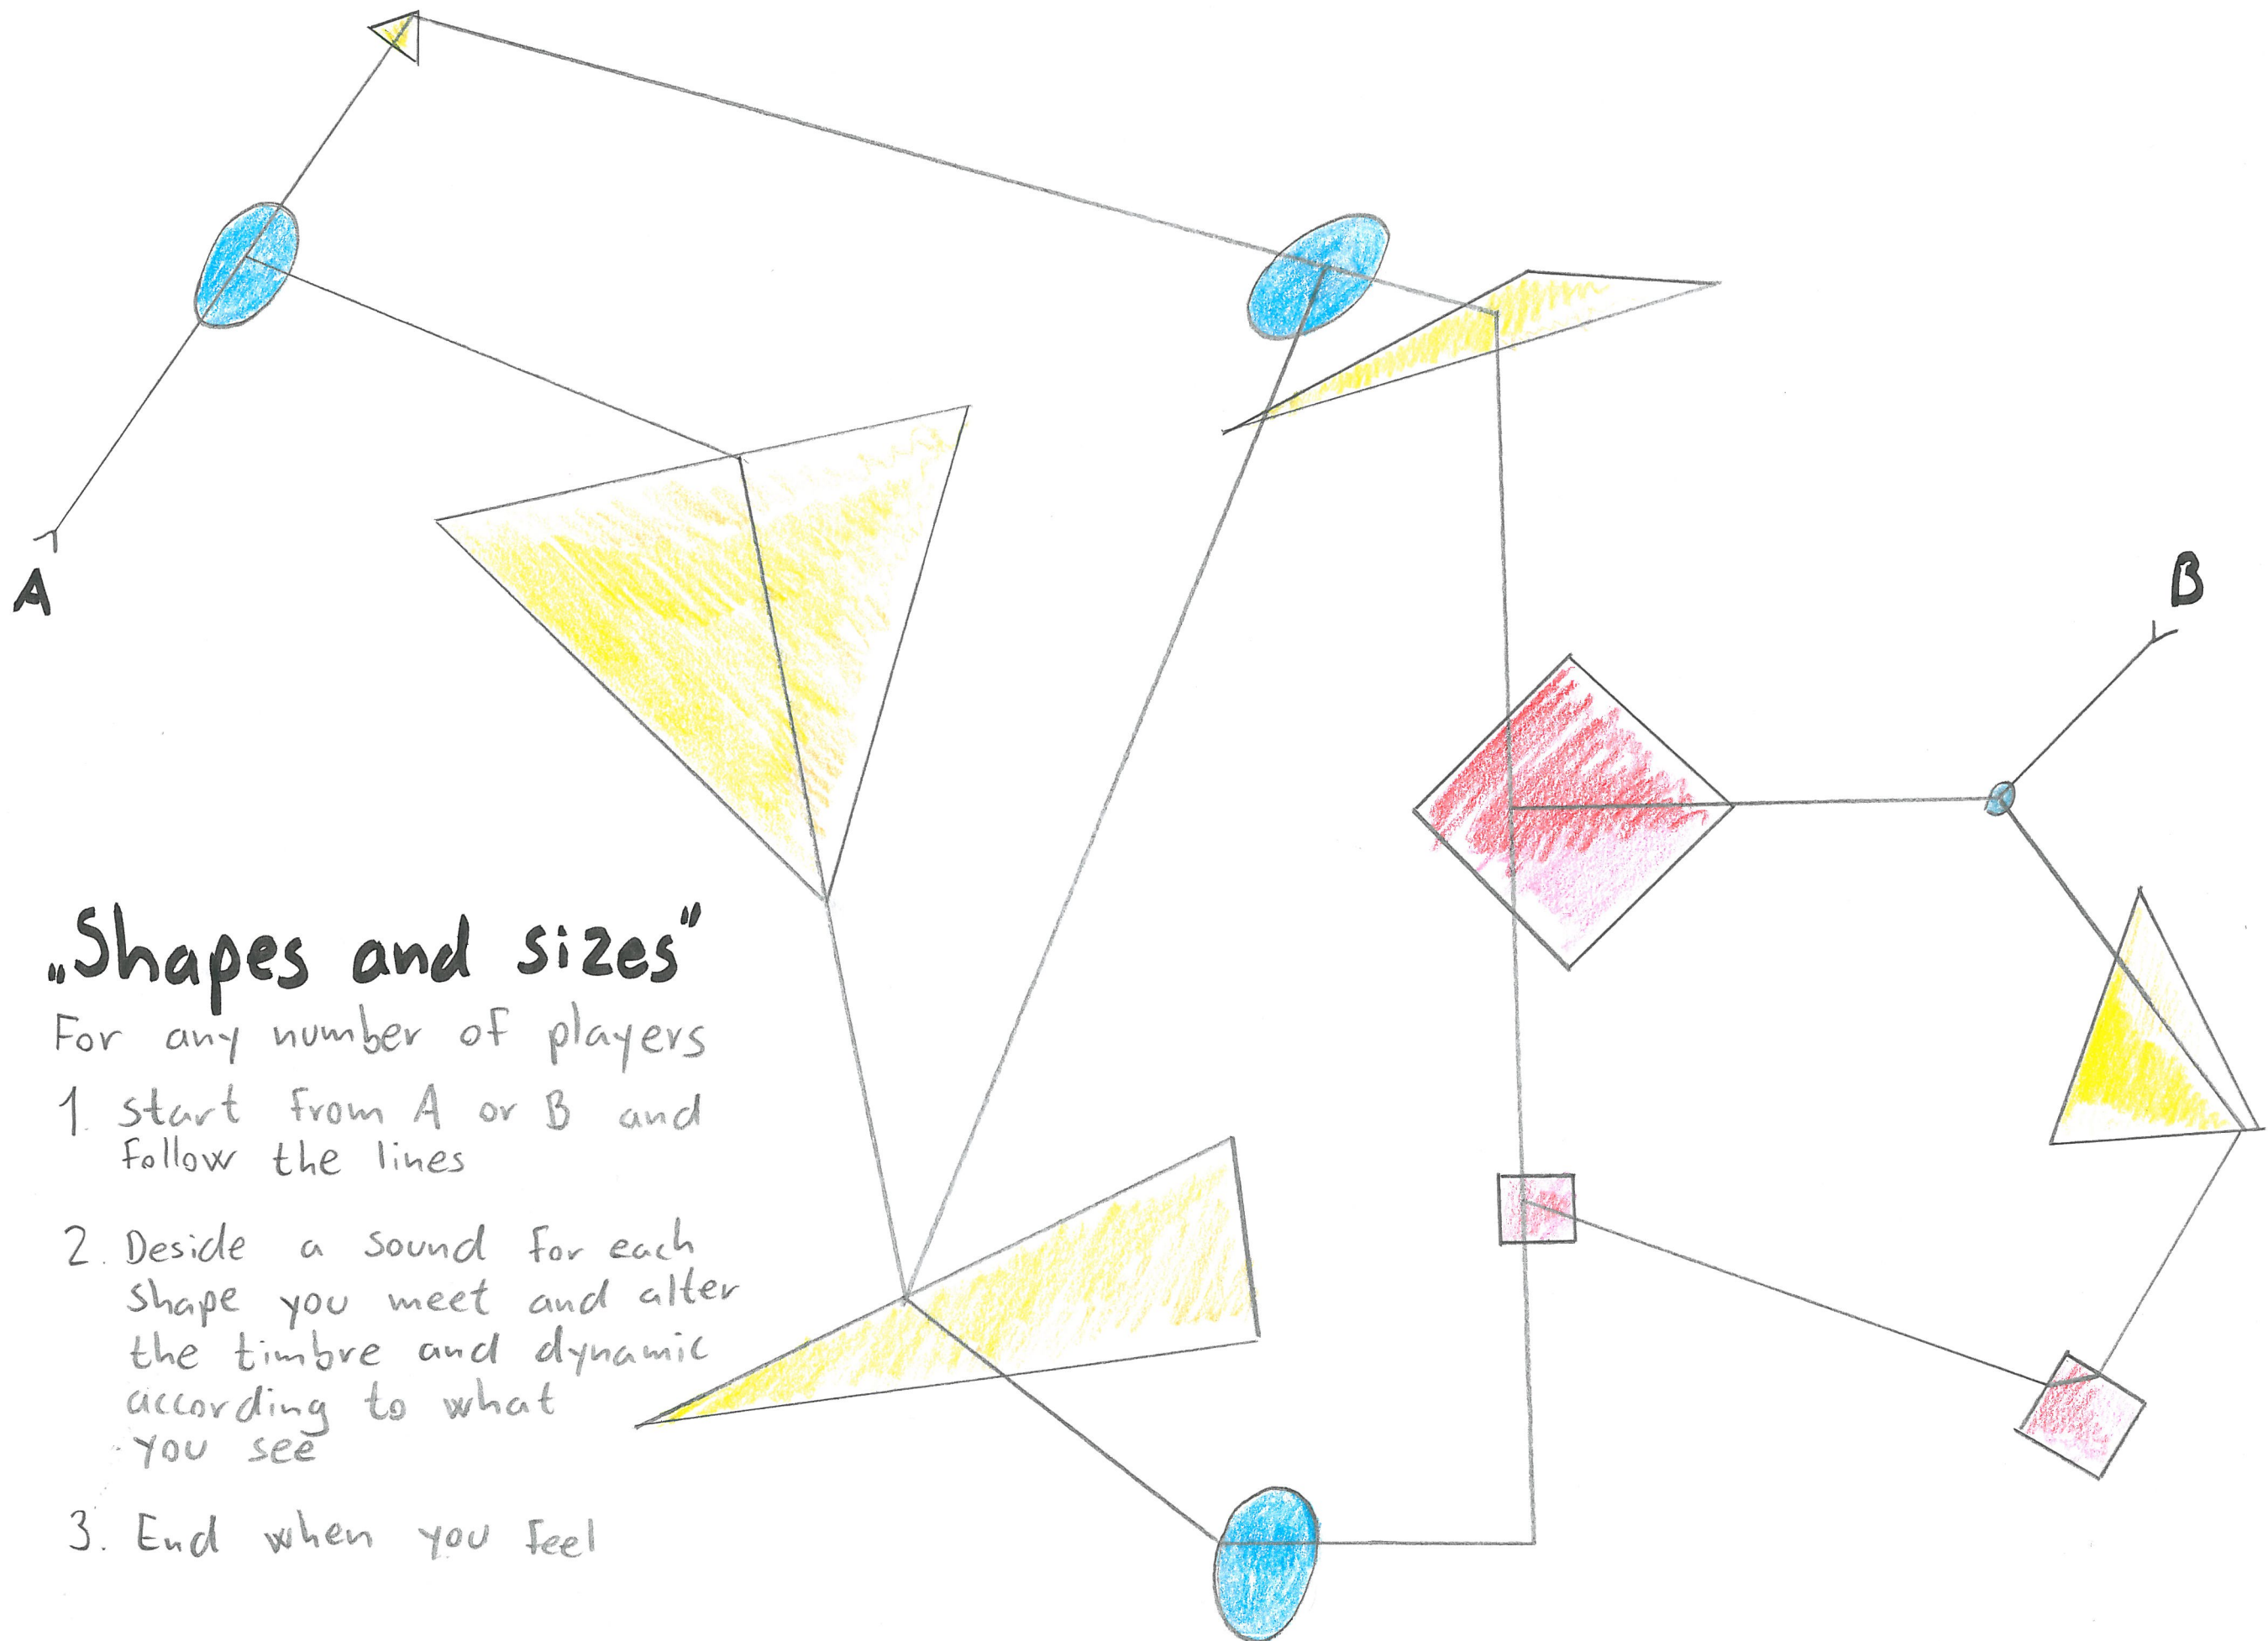 A
B
„Shapes and sizes"
For any number of players
1. start from A or B and
follow the lines
2. Deside a sound for each
shape you meet and alter
the timbre and dynamic
according to what
you see
3. End when you feel